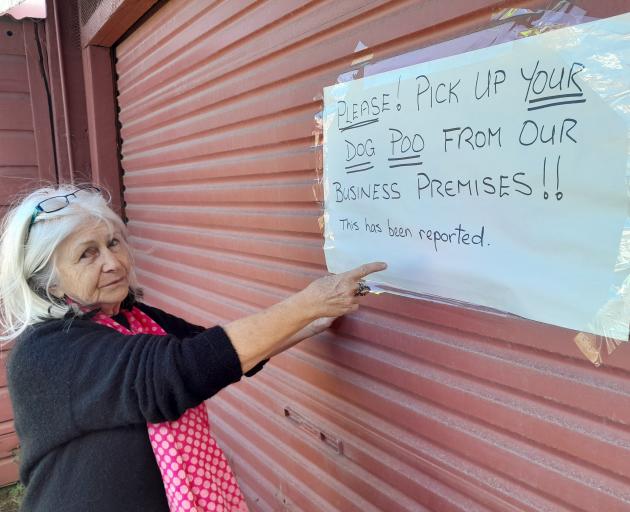 PLEASE! PICK UP YOUR
DOG POO FROM OUR
BUSINESS PREMISES!!
This has been reported.